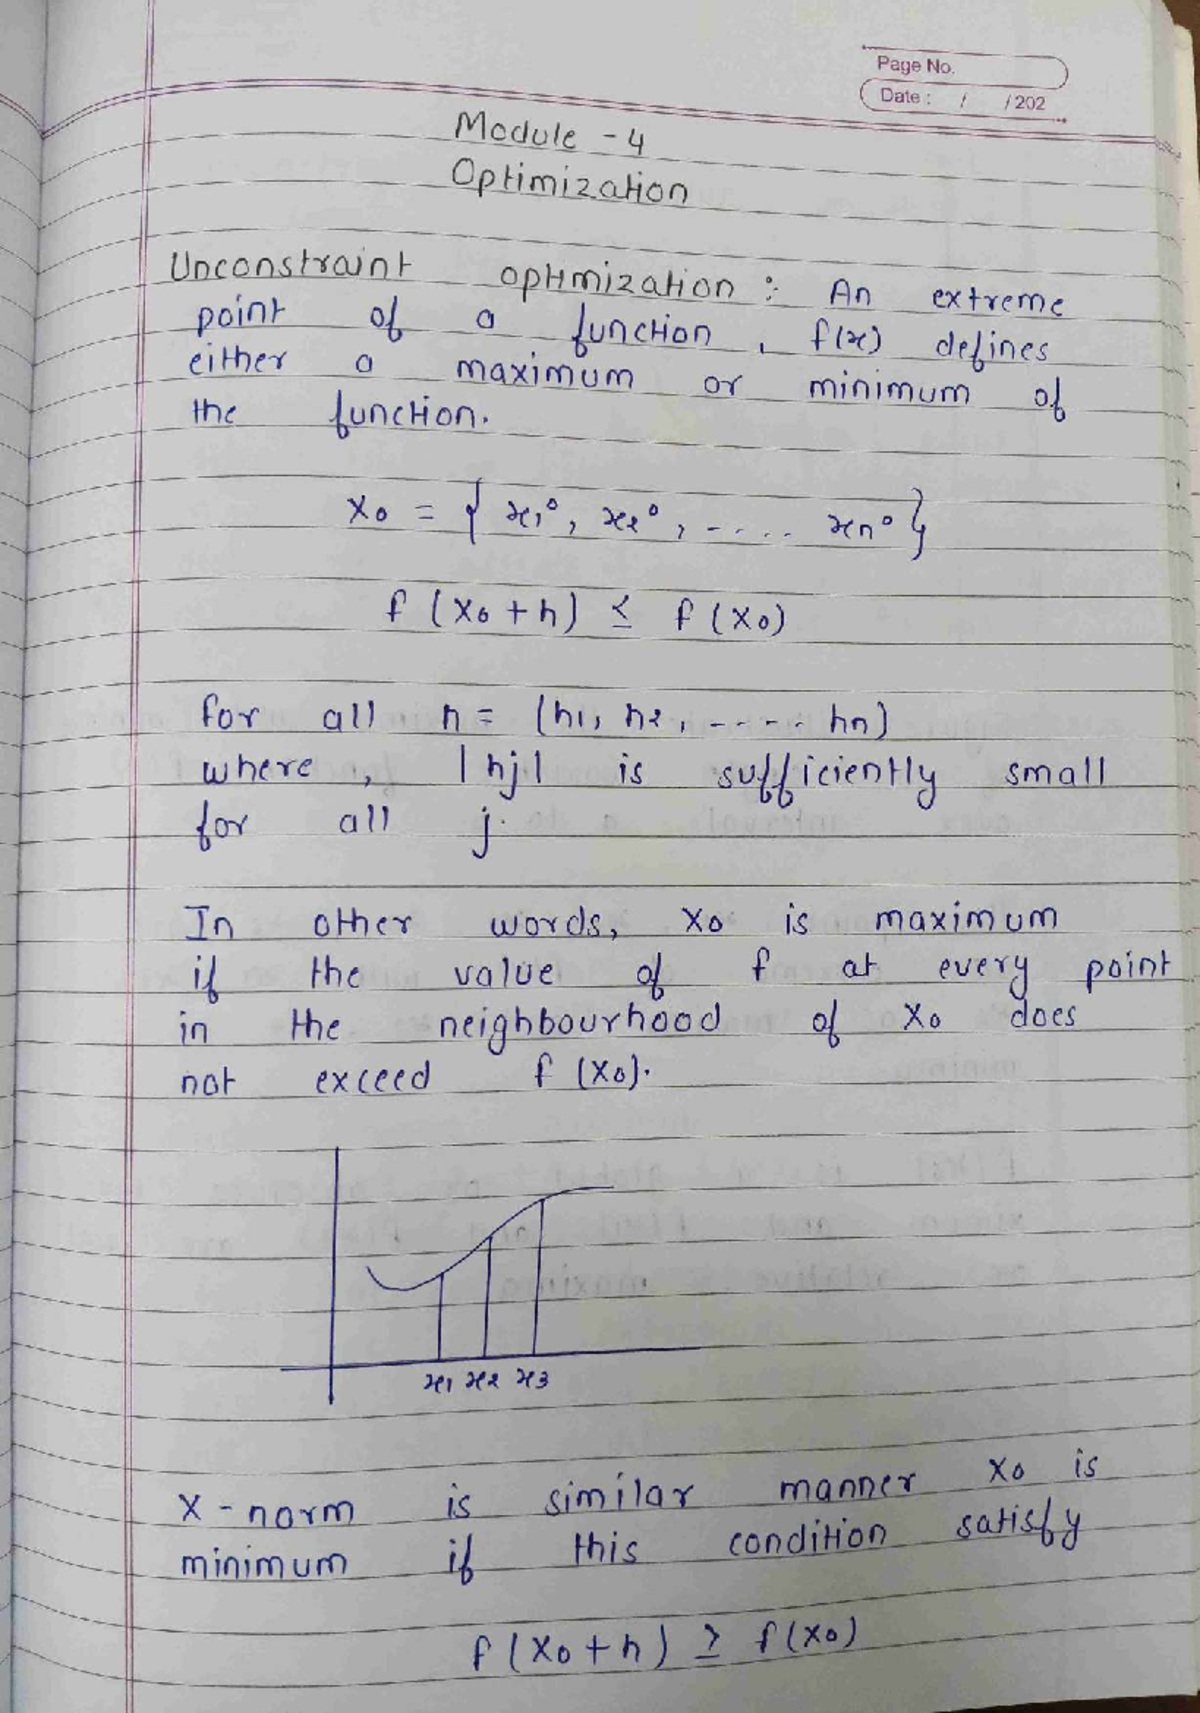 Page No.
Date : / /202
Module - 4
Optimization
Unconstraint optimization : An extreme
point of a function , f(x) defines
either a maximum or minimum of
the function.
X₀ = { x₁°, x₂°, ----- xₙ° }
f (X₀ + h) ≤ f (X₀)
for all h = (h₁, h₂, ----- hₙ)
where , |hj| is sufficiently small
for all j.
In other words, X₀ is maximum
if the value of f at every point
in the neighbourhood of X₀ does
not exceed f (X₀).
x₁ x₂ x₃
X - norm is similar manner X₀ is
minimum if this condition satisfy
f (X₀ + h) ≥ f(X₀)